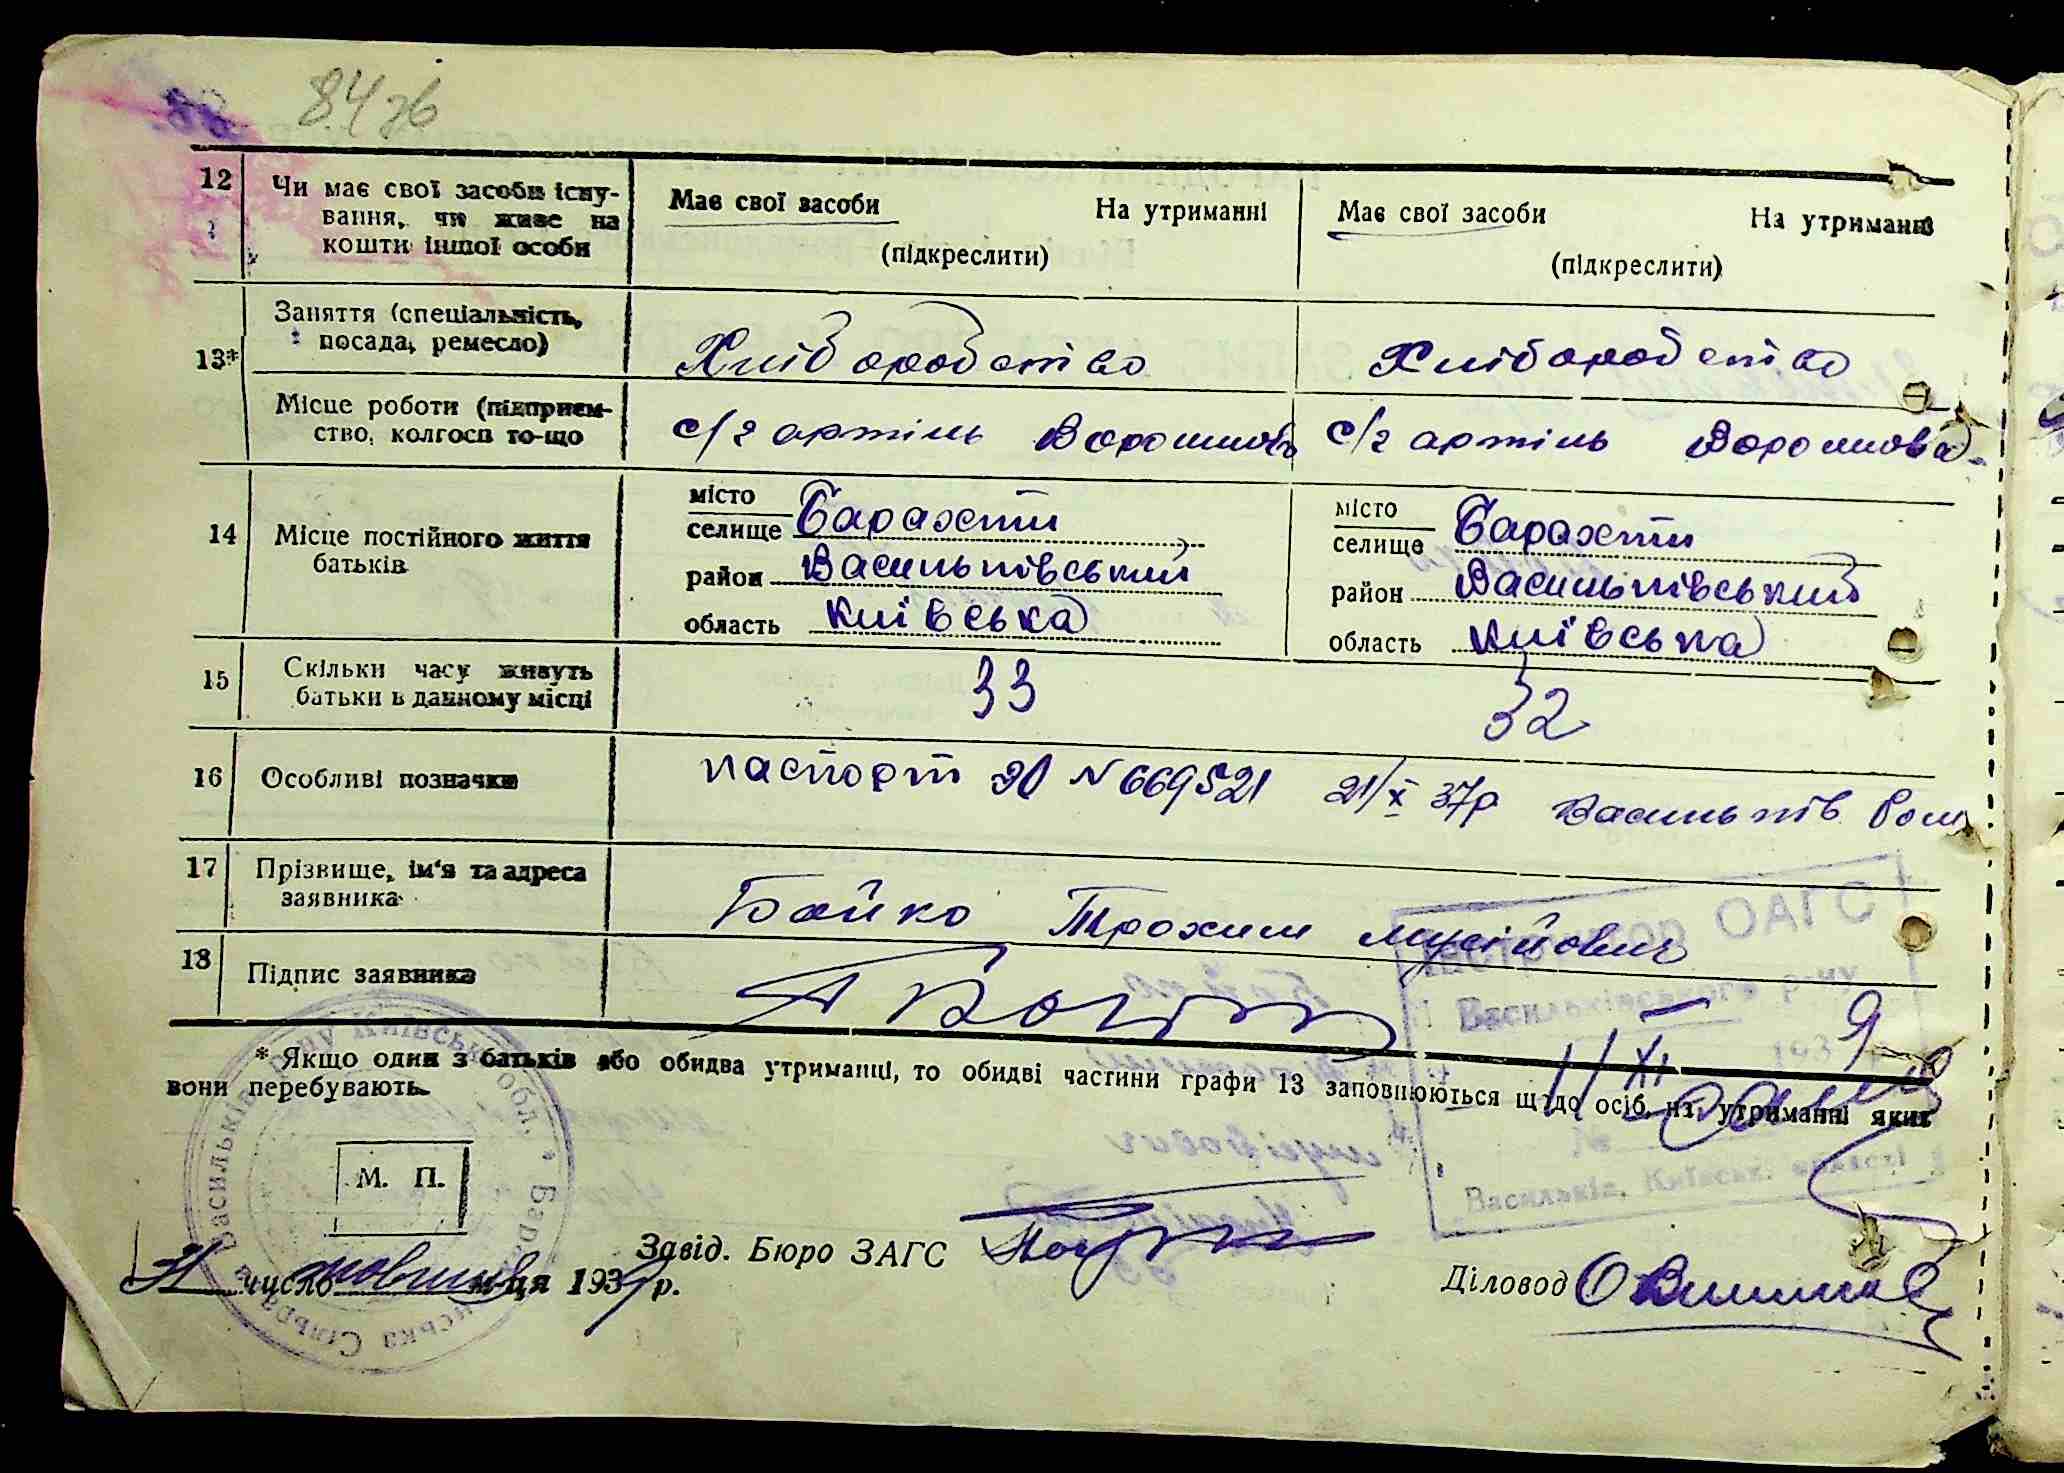 84 зв
12 Чи має свої засоби існу-
вання, чи живе на
кошти іншої особи
Має свої засоби На утриманні
(підкреслити)
Має свої засоби На утриманні
(підкреслити)
13* Заняття (спеціальність,
посада, ремесло)
Хліборобство
Хліборобство
Місце роботи (підприєм-
ство, колгосп то-що
с/г артіль Ворошилова
с/г артіль Ворошилова
14 Місце постійного життя
батьків
місто
селище Барахти
район Васильківський
область Київська
місто
селище Барахти
район Васильківський
область Київська
15 Скільки часу живуть
батьки в данному місці
33
32
16 Особливі позначки
паспорт № 669521 21/X 37р Васильків
17 Прізвище, ім'я та адреса
заявника
Бойко Трохим Мусійович
18 Підпис заявника
* Якщо один з батьків або обидва утриманці, то обидві частини графи 13 заповнюються щодо осіб, на утриманні яких
вони перебувають.
ОАГС
Васильківського р-ну
193 9 р.
11 XI
№
Васильків, Київськ. області
М. П.
Завід. Бюро ЗАГС
число м-ця 193 р.
Діловод